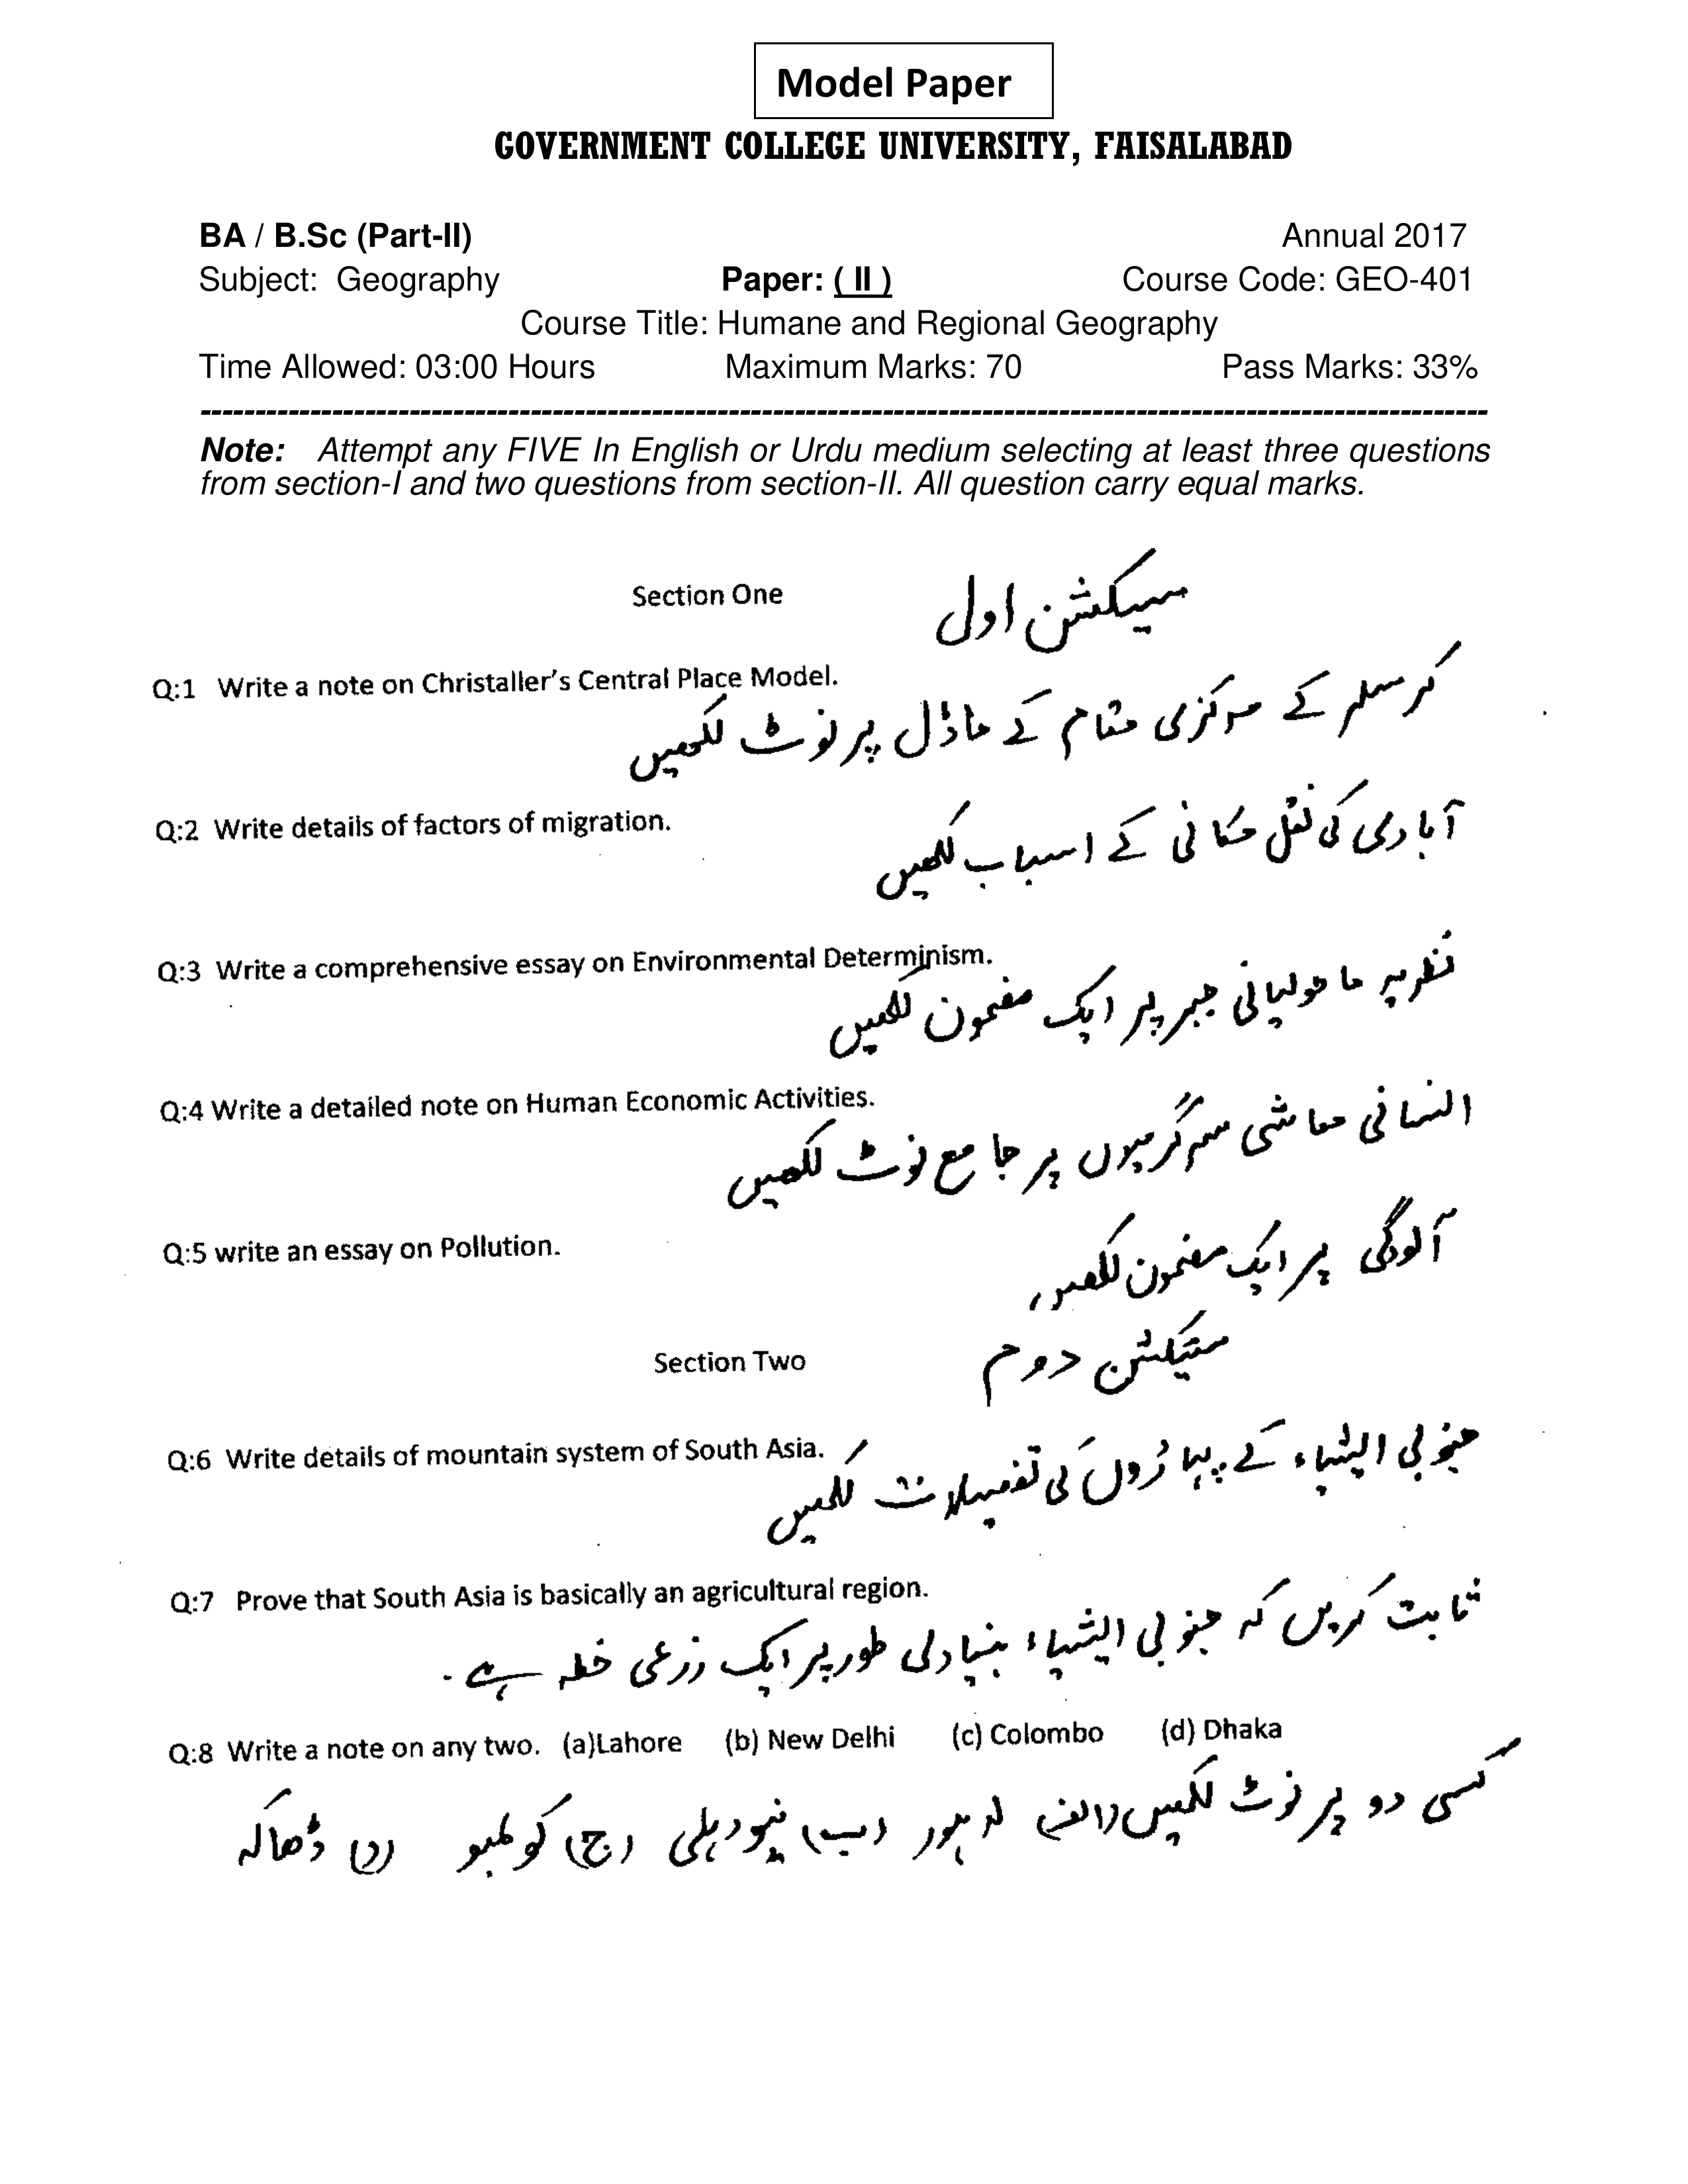 Model Paper
GOVERNMENT COLLEGE UNIVERSITY, FAISALABAD
BA / B.Sc (Part-II) Annual 2017
Subject: Geography Paper: ( II ) Course Code: GEO-401
Course Title: Humane and Regional Geography
Time Allowed: 03:00 Hours Maximum Marks: 70 Pass Marks: 33%
Note: Attempt any FIVE In English or Urdu medium selecting at least three questions
from section-I and two questions from section-II. All question carry equal marks.
Section One سیکشن اول
Q:1 Write a note on Christaller's Central Place Model.
کرسٹلر کے مرکزی مقام کے ماڈل پر نوٹ لکھیں
Q:2 Write details of factors of migration.
آبادی کی نقل مکانی کے اسباب لکھیں
Q:3 Write a comprehensive essay on Environmental Determinism.
نظریہ ماحولیاتی جبر پر ایک مضمون لکھیں
Q:4 Write a detailed note on Human Economic Activities.
انسانی معاشی سرگرمیوں پر جامع نوٹ لکھیں
Q:5 write an essay on Pollution.
آلودگی پر ایک مضمون لکھیں
Section Two سیکشن دوم
Q:6 Write details of mountain system of South Asia.
جنوبی ایشیاء کے پہاڑوں کی تفصیلات لکھیں
Q:7 Prove that South Asia is basically an agricultural region.
ثابت کریں کہ جنوبی ایشیاء بنیادی طور پر ایک زرعی خطہ ہے۔
Q:8 Write a note on any two. (a)Lahore (b) New Delhi (c) Colombo (d) Dhaka
کسی دو پر نوٹ لکھیں (الف) لاہور (ب) نیو دہلی (ج) کولمبو (د) ڈھاکہ